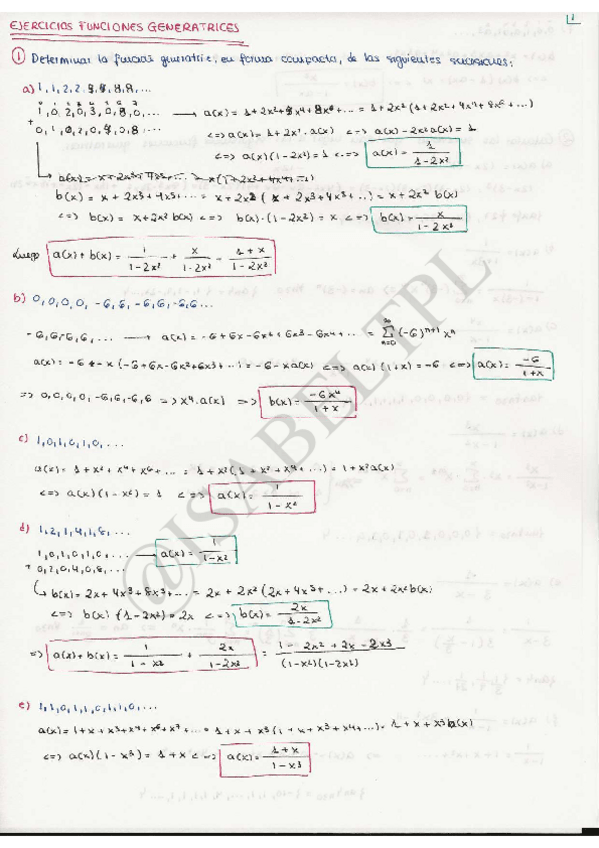 EJERCICIOS FUNCIONES GENERATRICES
1
① Determinar la función generatriz, en forma compacta, de las siguientes sucesiones:
a) 1, 1, 2, 2,
→ a(x) = 1 + 2x² + 4x⁴ + 8x⁶ + ... = 1 + 2x² (1 + 2x² + 4x⁴ + 8x⁶ + ...)
+ 0, 1, 0, 2, 0, 4, 0, 8, ...
<=> a(x) = 1 + 2x² · a(x) <=> a(x) - 2x² a(x) = 1
<=> a(x) (1 - 2x²) = 1 <=> a(x) = 1 / (1 - 2x²)
b(x) = x + 2x³ + 4x⁵ + ... = x + 2x² (x + 2x³ + 4x⁵ + ...) = x + 2x² b(x)
<=> b(x) = x + 2x² b(x) <=> b(x) · (1 - 2x²) = x <=> b(x) = x / (1 - 2x²)
Luego a(x) + b(x) = 1 / (1 - 2x²) + x / (1 - 2x²) = (1 + x) / (1 - 2x²)
b) 0, 0, 0, 0, -6, 6, -6, 6, -6, 6 ...
-6, 6, -6, 6, ... → a(x) = -6 + 6x - 6x² + 6x³ - 6x⁴ + ... = Σ (-6)ⁿ⁺¹ xⁿ
a(x) = -6 + - x (-6 + 6x - 6x² + 6x³ + ...) = -6 - x a(x) <=> a(x) (1 + x) = -6 <=> a(x) = -6 / (1 + x)
=> 0, 0, 0, 0, -6, 6, -6, 6 => x⁴ · a(x) => b(x) = -6x⁴ / (1 + x)
c) 1, 0, 1, 0, 1, 0, ...
a(x) = 1 + x² + x⁴ + x⁶ + ... = 1 + x² (1 + x² + x⁴ + ...) = 1 + x² a(x)
<=> a(x) (1 - x²) = 1 <=> a(x) = 1 / (1 - x²)
d) 1, 2, 1, 4, 1, 8, ...
1, 0, 1, 0, 1, 0, ... → a(x) = 1 / (1 - x²)
+ 0, 2, 0, 4, 0, 8, ...
b(x) = 2x + 4x³ + 8x⁵ + ... = 2x + 2x² (2x + 4x³ + ...) = 2x + 2x² b(x)
<=> b(x) (1 - 2x²) = 2x <=> b(x) = 2x / (1 - 2x²)
=> a(x) + b(x) = 1 / (1 - x²) + 2x / (1 - 2x²) = (1 - 2x² + 2x - 2x³) / (1 - x²)(1 - 2x²)
e) 1, 1, 0, 1, 1, 0, 1, 1, 0, ...
a(x) = 1 + x + x³ + x⁴ + x⁶ + x⁷ + ... = 1 + x + x³ (1 + x + x³ + x⁴ + ...) = 1 + x + x³ a(x)
<=> a(x) (1 - x³) = 1 + x <=> a(x) = (1 + x) / (1 - x³)
@ISABELTPL